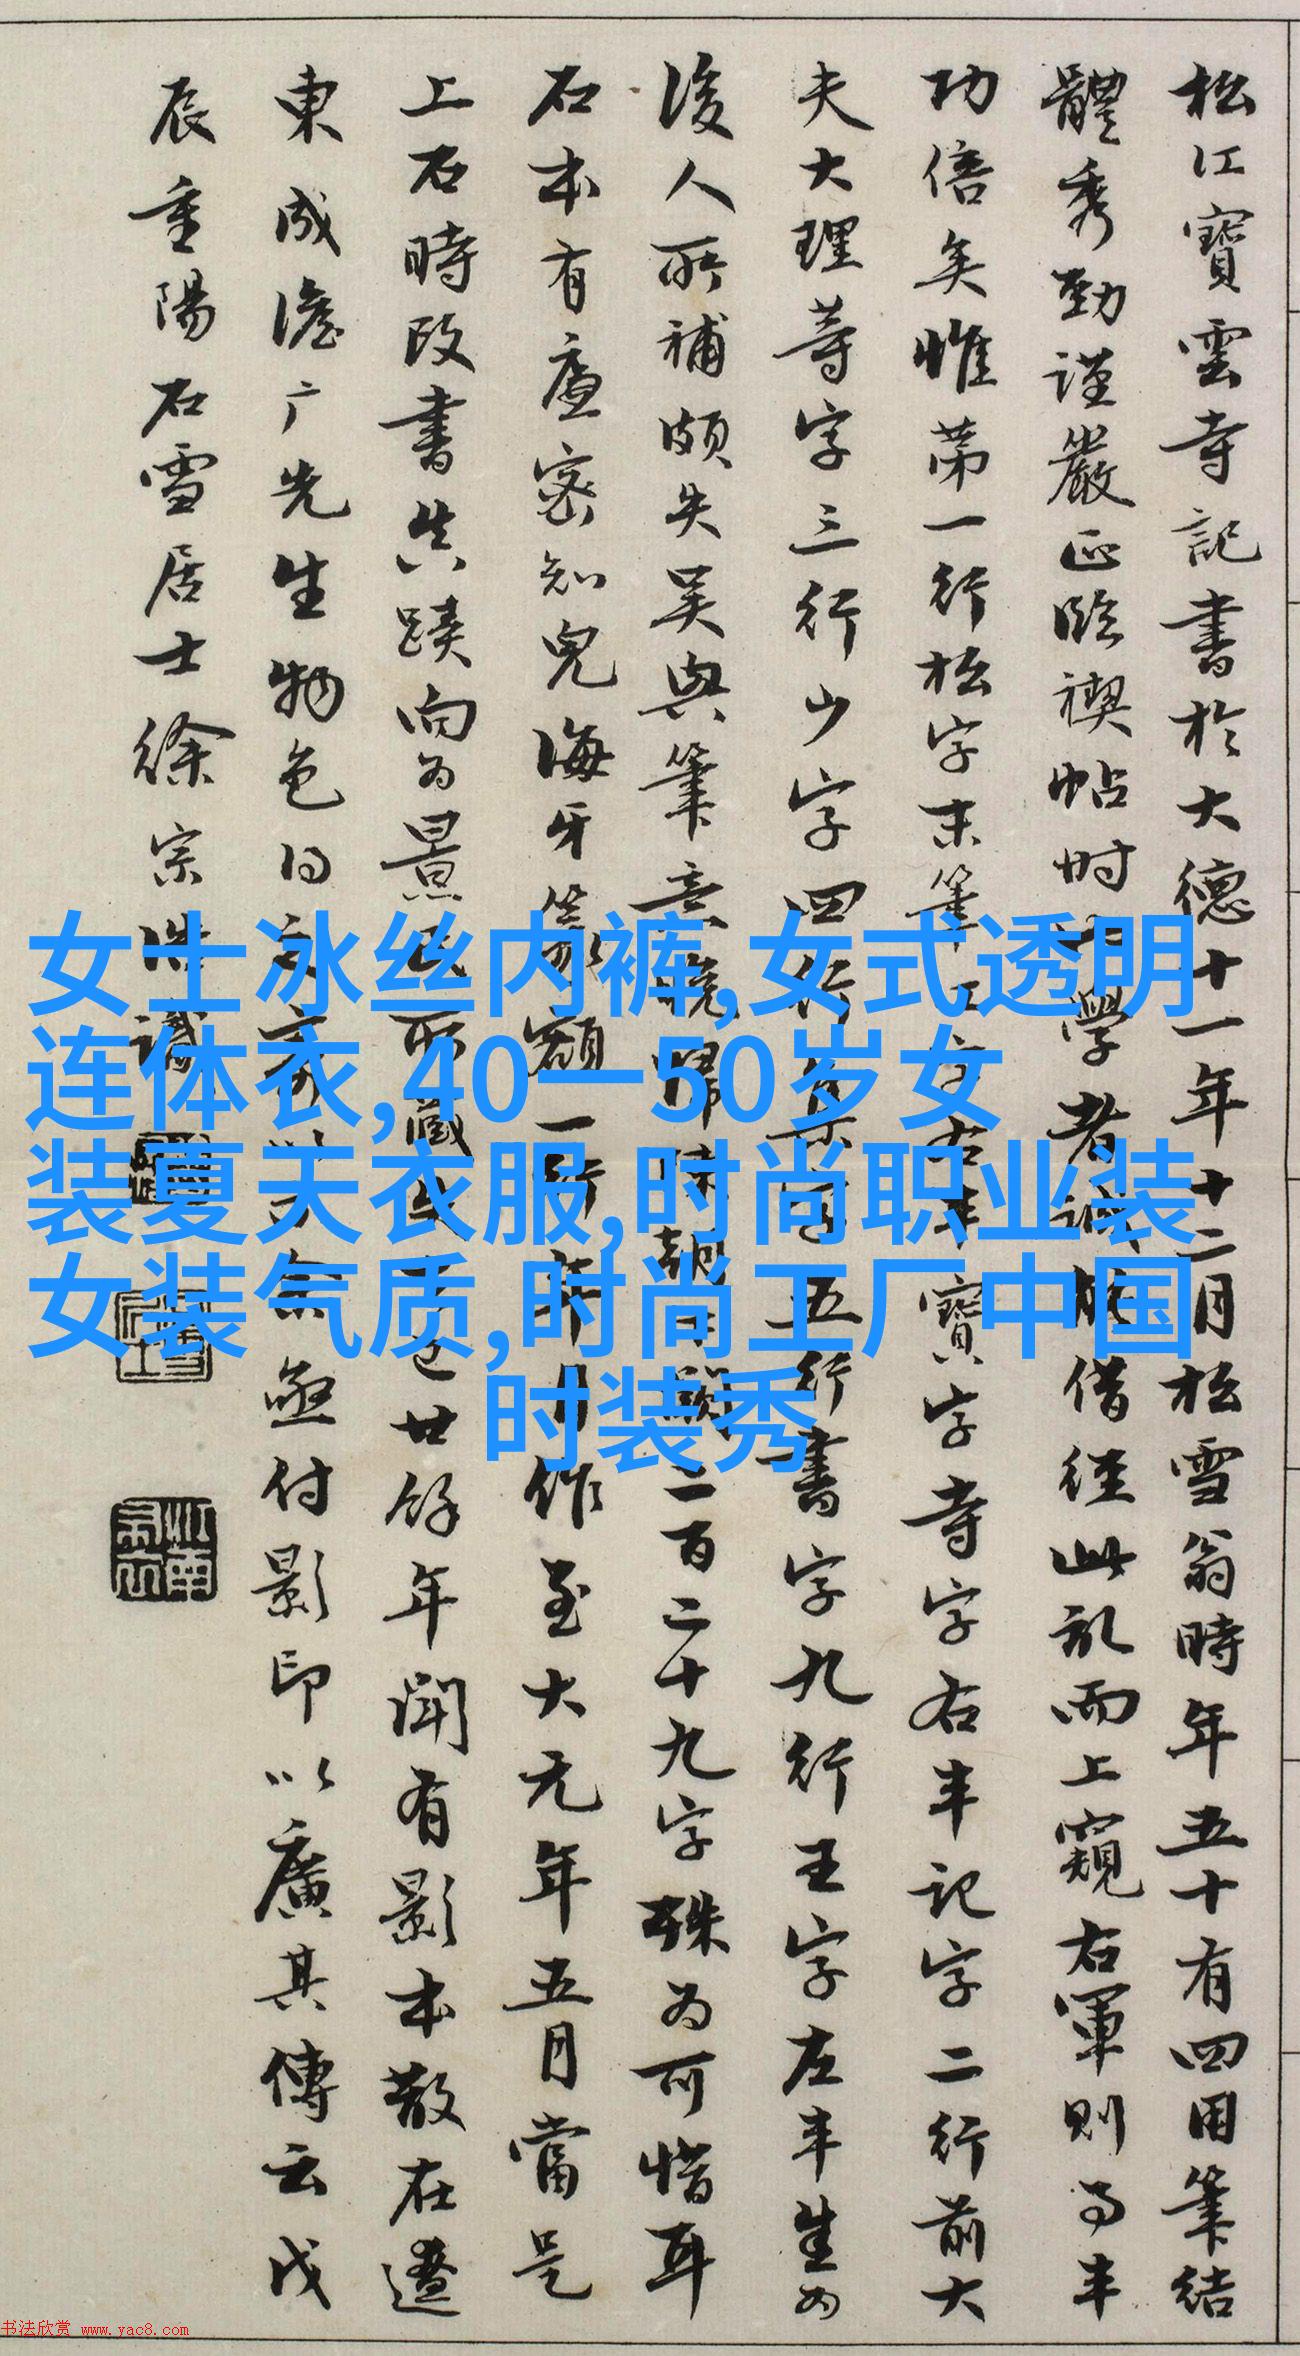 松江寶雲寺記書於大德十一年十二月松雪翁時年五十有四用筆結
體秀勁謹嚴正臨禊帖時學者誠能借徑此刻而上窺右軍則事半
功倍矣惟第一行松字末筆江字右半寶字寺字右半記字二行前大
夫大理等字三行少字四行集字五行書字九行王字左半生为
後人所補頗失吴興筆意二百二十九字殊为可惜耳
石本有廬密知兒海牙篆額一行年月作至大元年五月當是
上石時改書真蹟向为景氏所藏廿餘年聞有影本散在遼
東成澹广先生物色得亟付影印以廣其傳云戊
辰重陽石雪居士徐宗浩識
女士冰丝内裤,女式透明
连体衣,40一50岁女
装夏天衣服,时尚职业装
女装气质,时尚工厂中国
时装秀
书法欣赏 www.yac8.com